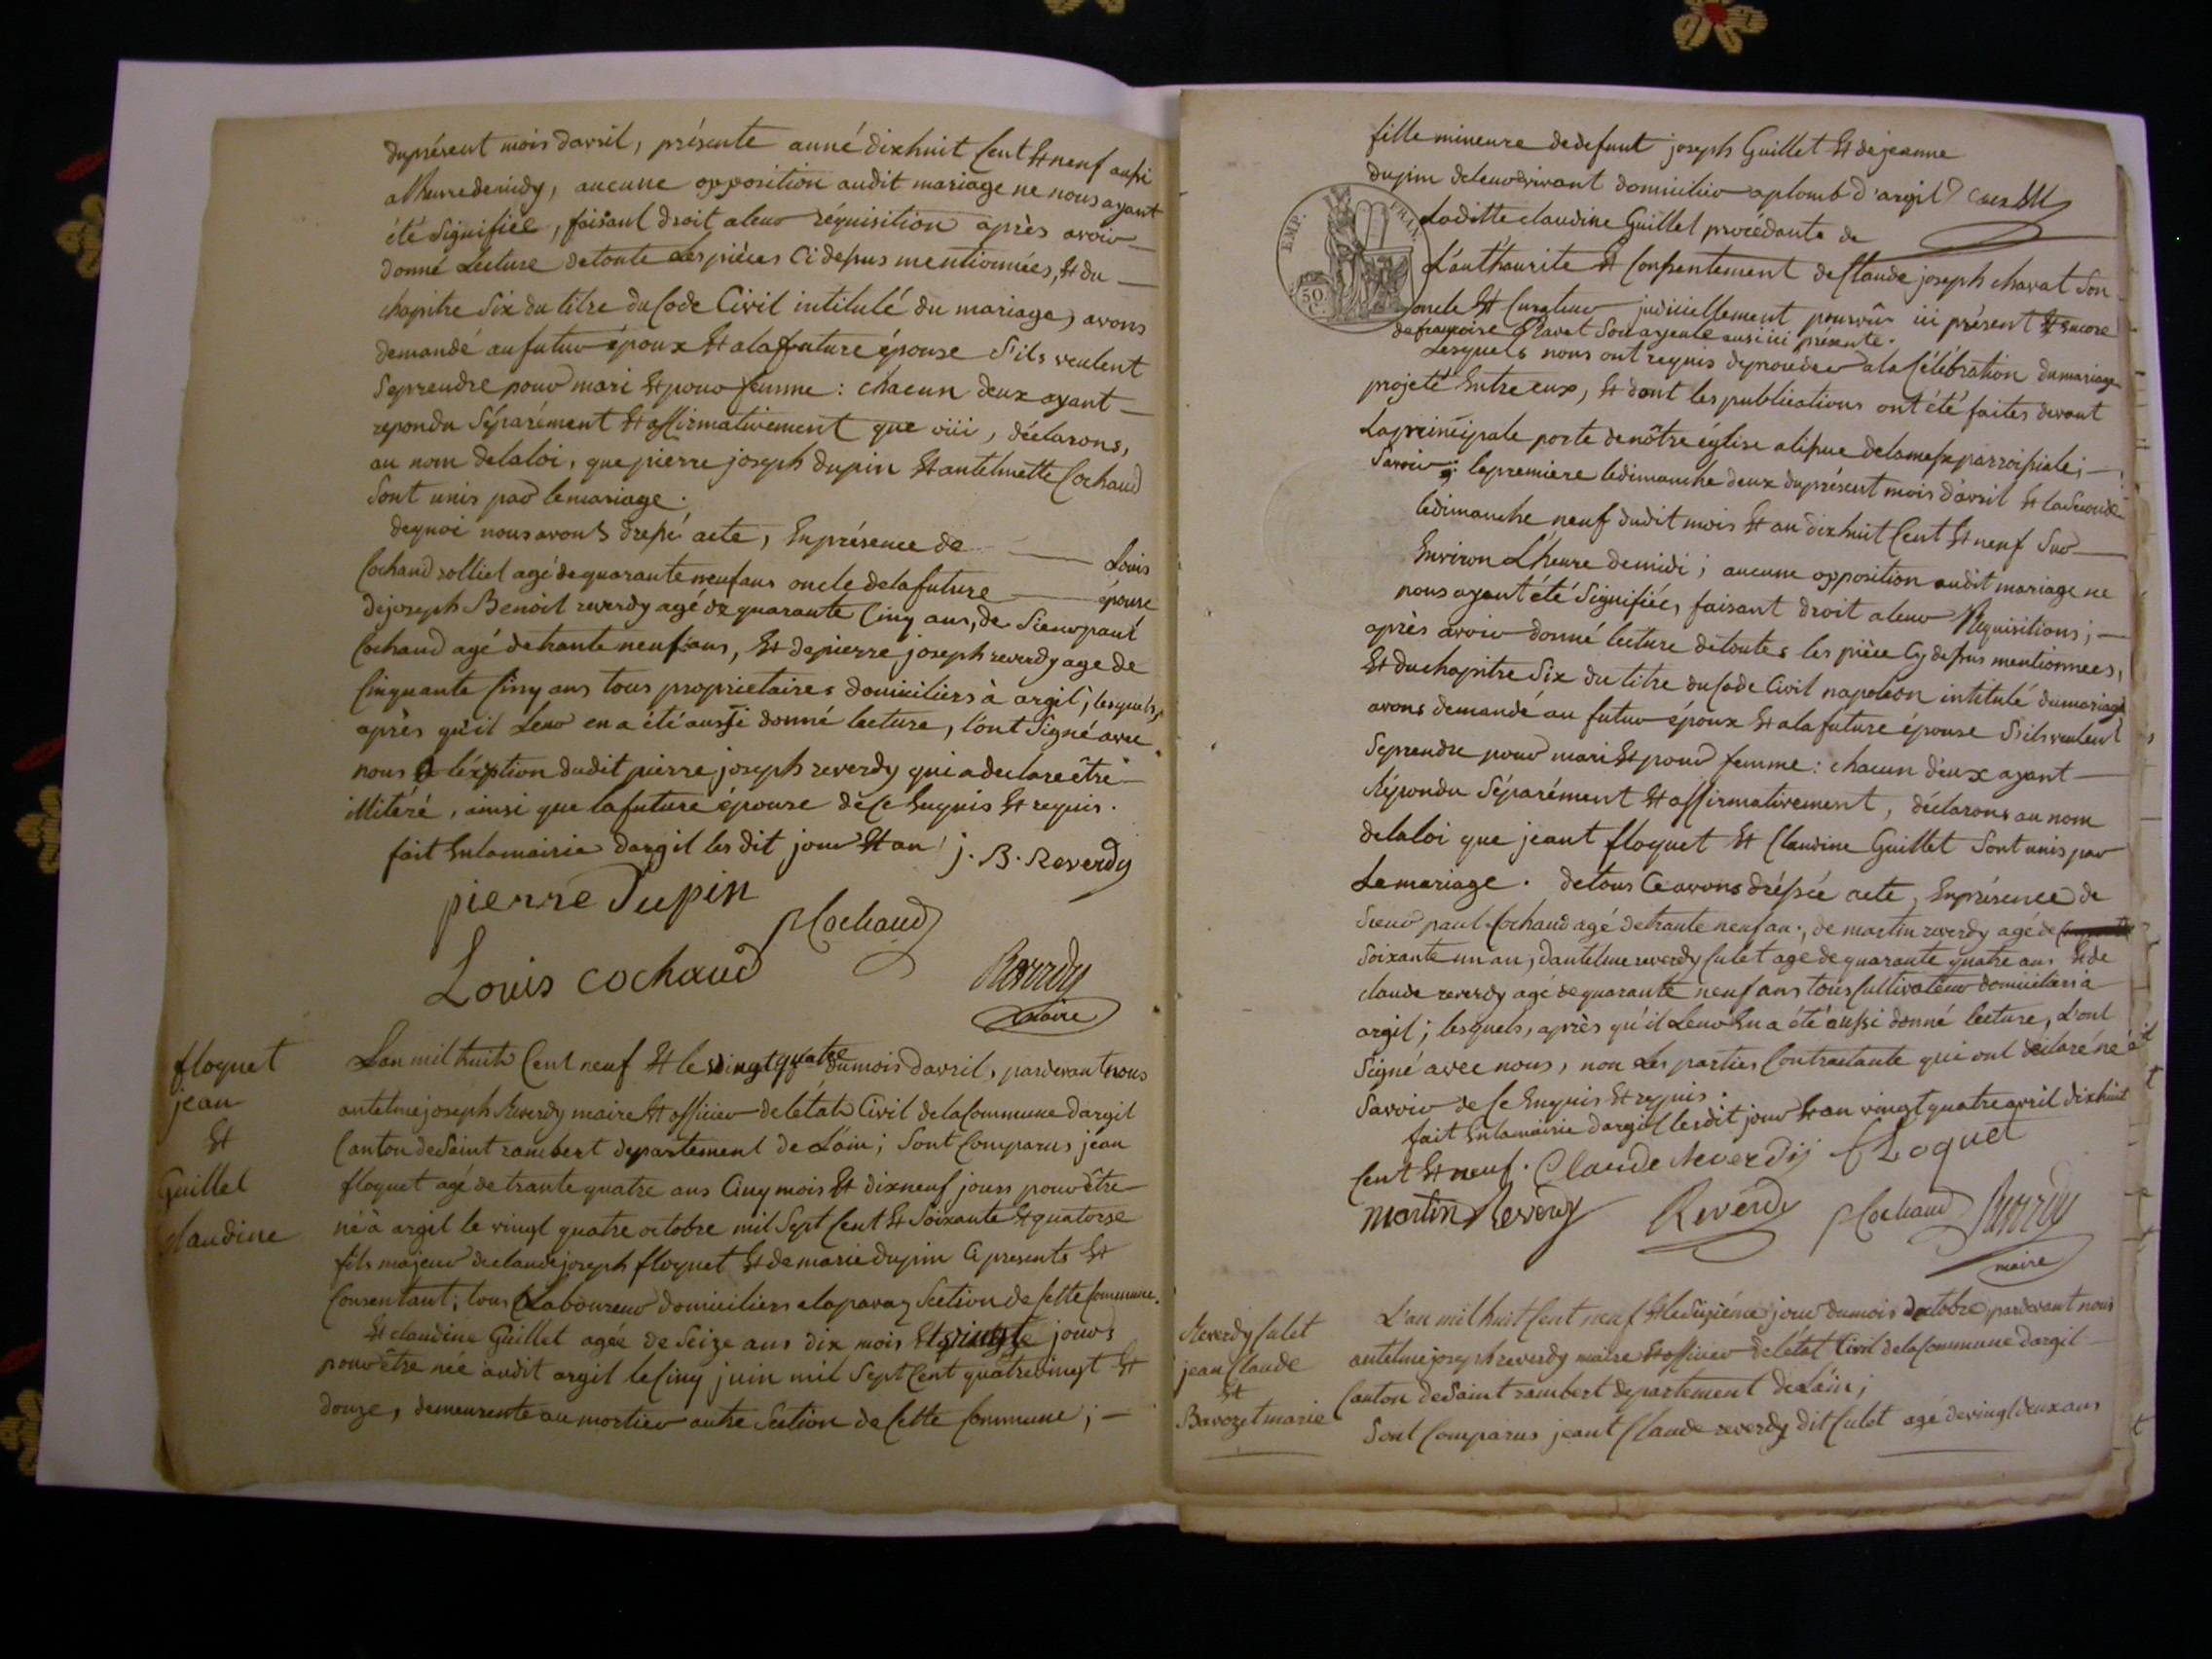 duprésent mois davril, présente année dixhuit Cent Et neuf aussi
alheuredemidy, aucune opposition audit mariage ne nous ayant
été Signifiée, faisant droit aleur réquisition après avoir
donné Lecture detoute Les pièces Cidessus mentionnées, Et du
chapitre Six du titre du Code Civil intitulé du mariage, avons
demandé aufutur époux Et alafuture épouse S'ils veulent
Seprendre pour mari Et pour femme : chacun deux ayant
repondu Séparément Et affirmativement que oüi, déclarons,
au nom delaloi, que pierre joseph dupin Et antelmette Cochaud
Sont unis par lemariage.
dequoi nous avons dressé acte, Enprésence de Louis
Cochaud rolliet agé de quarante neuf ans oncle delafuture épouse
dejoseph Benoit reverdy agé de quarante Cinq ans, de Sieur paul
Cochaud agé detrante neuf ans, Et depierre joseph reverdy age de
Cinquante Cinq ans tous proprietaires domiciliers à argil, lesquels,
après qu'il Leur en a été aussi donné lecture, l'ont Signé avec
nous a léxption dudit pierre joseph reverdy qui a declare être
illitéré, ainsi que lafuture épouse de Ce Enquis Et requis.
fait Enlamairie dargil les dit jour Et an j. B. Reverdy
pierre Dupin
PCochaud
Louis cochaud
Reverdy
maire
floquet
jean
Et
Guillet
Claudine
L'an mil huit Cent neuf Et le vingt quatre dumois davril, pardevant nous
antelme joseph Reverdy maire Et officier delétat Civil delaCommune dargil
Canton deSaint rambert departement de L'ain; Sont Comparus jean
floquet agé de trante quatre ans Cinq mois Et dixneuf jours pour être
né à argil le vingt quatre octobre mil Sept Cent Et Soixante Et quatorse
fils majeur declaude joseph floquet Et de marie dupin Ci presents Et
Consentant; tous Laboureur domiciliers alaparaz Section de Cette Commune.
Et claudine Guillet agée de Seize ans dix mois Et vingt jours
pour être née audit argil le Cinq juin mil Sept Cent quatrevingt Et
douze, demeurente au mortier autre Section de Cette Commune;
fille mineure dedefunt joseph Guillet Et dejeanne
dupin deleur vivant domicilier aplomb d'argil
EMP. FRAN.
50
C.
Laditte claudine Guillet procédante de
L'authaurite Et Consentement de Claude joseph charat Son
oncle Et Curateur judiciellement pourvû ici présent Et Encore
defrançoise
Lesquels nous ont requis deproceder ala Célébration dumariage
projeté Entre eux, Et dont les publications ont été faites devant
Laprincipale porte denôtre église alissue delamesse parroissiale;
Savoir; lapremiere ledimanche deux duprésent mois d'avril Et laSeconde
ledimanche neuf dudit mois Et an dixhuit Cent Et neuf Sur
Environ L'heure demidi; aucune opposition audit mariage ne
nous ayant été Signifiée, faisant droit aleur Requisitions;
après avoir donné lecture detoutes les pièce Cy dessus mentionnees,
Et duchapitre Six du titre du Code Civil napoleon intitulé dumariage
avons demandé au futur époux Et alafuture épouse S'ils veulent
Seprendre pour mari Et pour femme : chacun d'eux ayant
Répondu Séparément Et affirmativement, déclarons au nom
delaloi que jeant floquet Et Claudine Guillet Sont unis par
Le mariage. detous Ce avons dréssée acte, Enprésence de
Sieur paul Cochaud agé detrante neuf an., de martin reverdy agé de
Soixante un an, dantelme reverdy Culet age de quarante quatre ans Et de
claude reverdy agé de quarante neuf ans tous Cultivateur domiciliers à
argil; lesquels, après qu'il Leur En a été aussi donné lecture, L'ont
Signé avec nous, non Les parties Contractante qui ont déclaré ne
Savoir de Ce Enquis Et requis.
fait Enlamairie dargil lesdit jour Et an vingt quatre avril dixhuit
Cent Et neuf. Claude Reverdy fLoquet
martin Reverdy Reverdy PCochaud Reverdy
maire
Reverdy Culet
jean Claude
Et
Bavozet marie
L'an mil huit Cent neuf Et le Sixiéme jour dumois doctobre pardevant nous
antelme joseph reverdy maire Et officier delétat Civil delaCommune dargil
Canton deSaint rambert departement deLain;
Sont Comparus jeant Claude reverdy dit Culet agé devingt deux ans